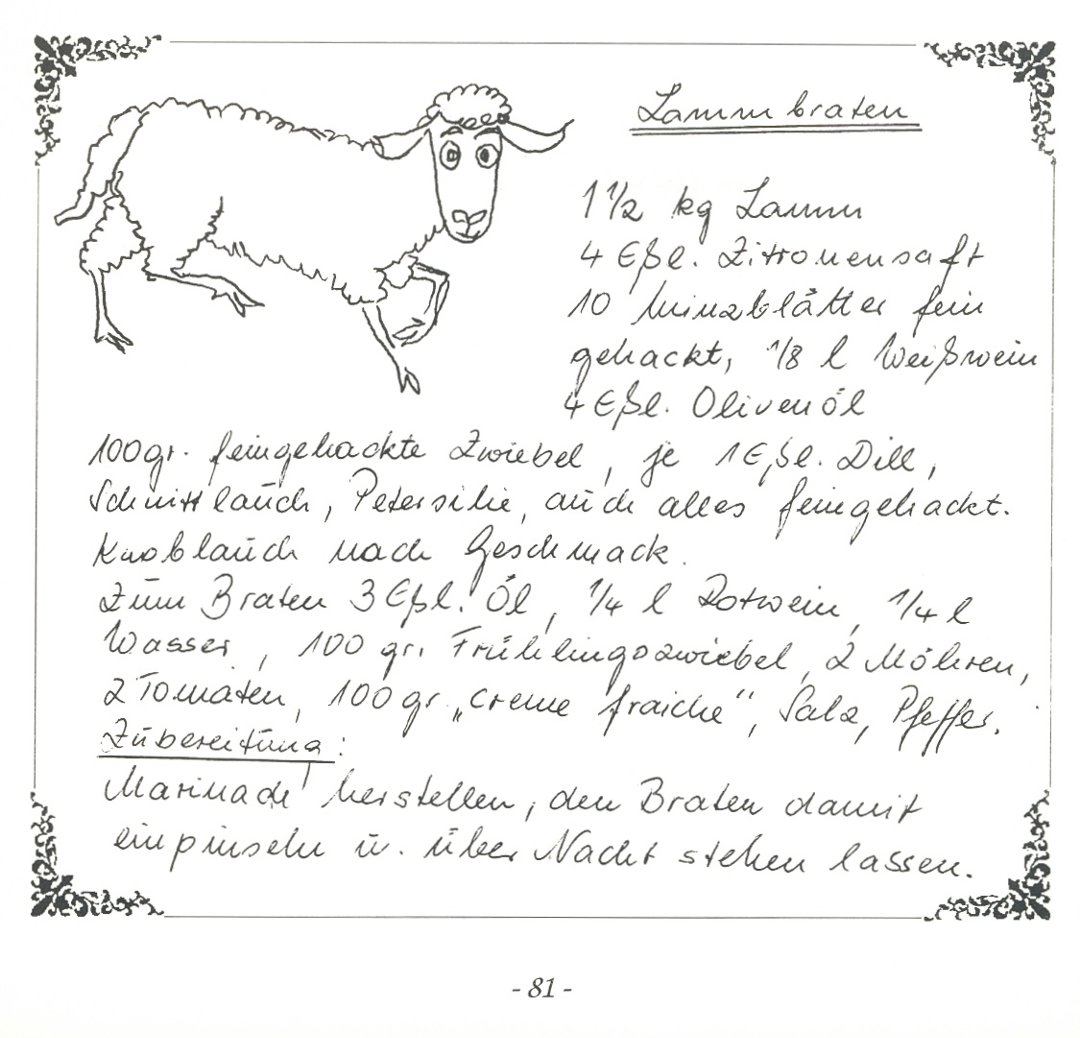 Lammbraten
1 1/2 kg Lamm
4 Eßl. Zitronensaft
10 Minzblätter fein
gehackt, 1/8 l Weißwein
4 Eßl. Olivenöl
100gr. feingehackte Zwiebel, je 1 Eßl. Dill,
Schnittlauch, Petersilie, auch alles feingehackt.
Knoblauch nach Geschmack.
Zum Braten 3 Eßl. Öl, 1/4 l Rotwein, 1/4 l
Wasser, 100 gr. Frühlingszwiebel, 2 Möhren,
2 Tomaten, 100 gr. „creme fraiche", Salz, Pfeffer.
Zubereitung:
Marinade herstellen, den Braten damit
einpinseln u. über Nacht stehen lassen.
- 81 -